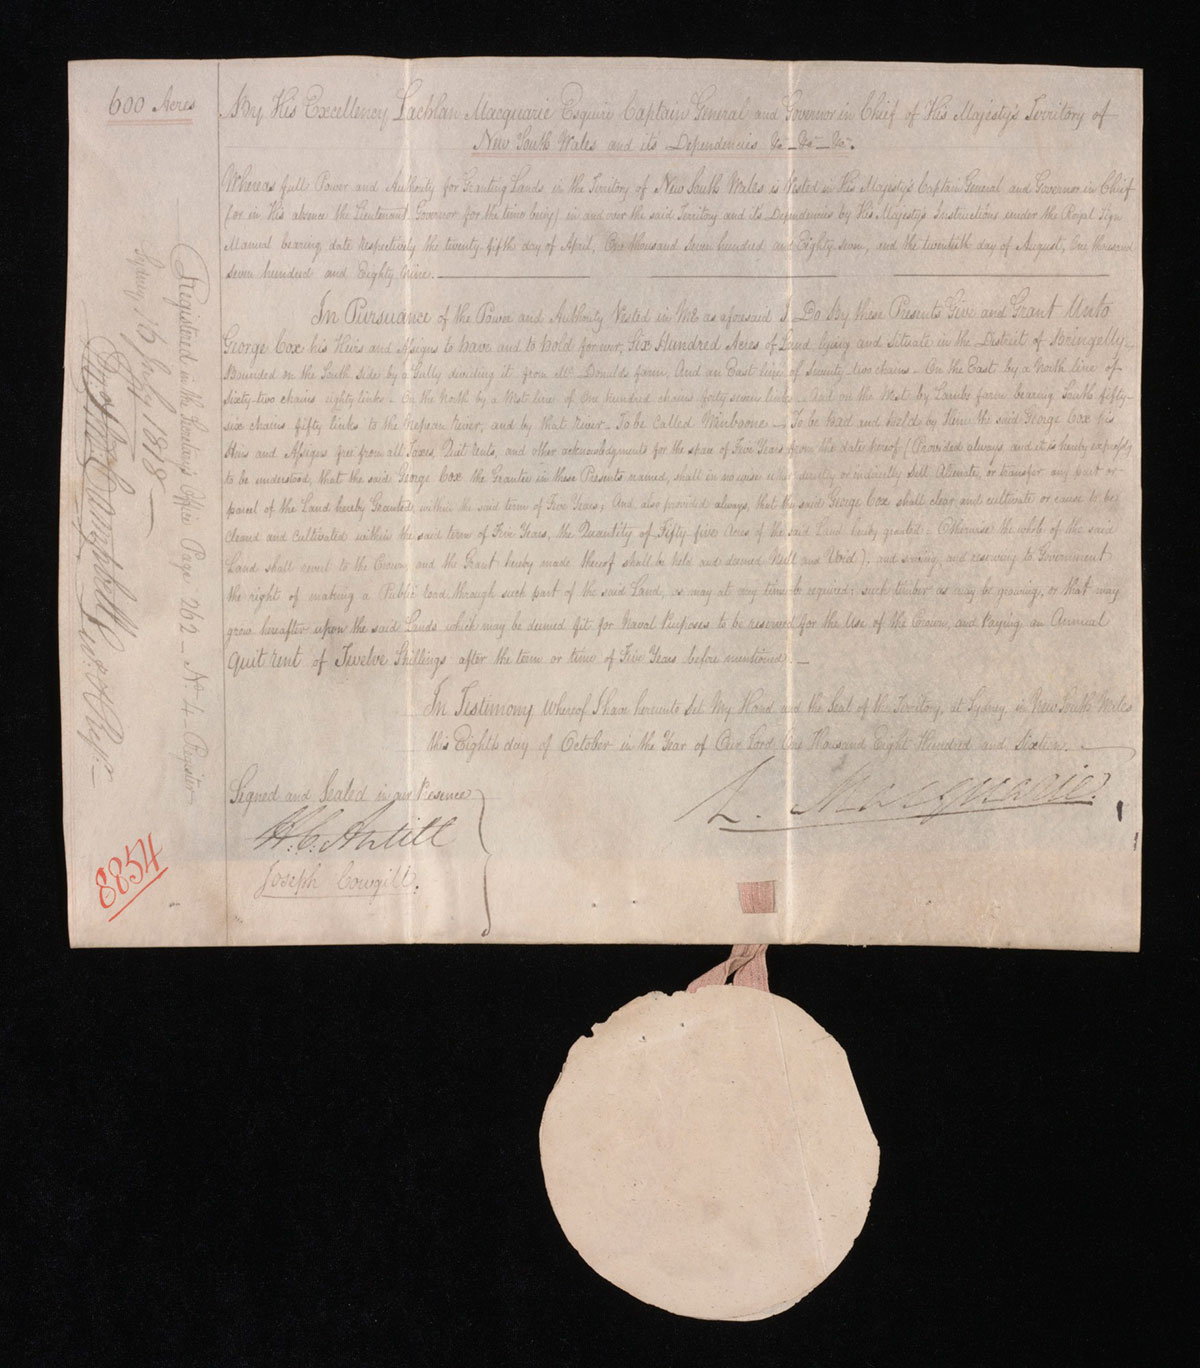 600 Acres
By His Excellency Lachlan Macquarie Esquire Captain General and Governor in Chief of His Majesty's Territory of
New South Wales and its Dependencies &c — &c — &c —.
Whereas full Power and Authority for Granting Lands in the Territory of New South Wales is Vested in His Majesty's Captain General and Governor in Chief
(or in His absence the Lieutenant Governor for the time being) in and over the said Territory and its Dependencies by His Majesty's Instructions under the Royal Sign
Manual bearing date respectively the twenty fifth day of April, One thousand Seven hundred and Eighty seven, and the twentieth day of August, One thousand
seven hundred and Eighty nine.
In Pursuance of the Power and Authority Vested in Me as aforesaid I Do By these Presents Give and Grant Unto
George Cox his Heirs and Assigns to have and to hold for ever, Six Hundred Acres of Land lying and Situate in the District of Bringelly
Bounded on the South side by a Gully dividing it from Mc Donalds farm, And an East line of Seventy two chains – On the East by a North line of
sixty-two chains eighty links – On the North by a West line of One hundred chains forty seven links – And on the West by Lambs farm bearing South fifty-
six chains fifty links to the Nepean River, and by that River – To be Called Winbourne – To be Had and Held by Him the said George Cox his
Heirs and Assigns free from all Taxes, Quit Rents, and other acknowledgments for the space of Five Years from the date hereof (Provided always and it is hereby expressly
to be understood, that the said George Cox the Grantee in these Presents named, shall in no wise either directly or indirectly Sell, Alienate, or transfer any part or
parcel of the Land hereby Granted, within the said term of Five Years; And also provided always, that the said George Cox shall clear and cultivate or cause to be
cleared and cultivated within the said term of Five Years, the Quantity of Fifty five Acres of the said Land hereby granted – Otherwise the whole of the said
Land shall revert to the Crown and the Grant hereby made thereof shall be held and deemed Null and Void); and saving and reserving to Government
the right of making a Public road through such part of the said Land, as may at any time be required; such timber as may be growing, or that may
grow hereafter upon the said Lands which may be deemed fit for Naval Purposes to be reserved for the Use of the Crown, and Paying an Annual
Quit rent of Twelve Shillings after the term or time of Five Years before mentioned. —
In Testimony Whereof I have hereunto Set My Hand and the Seal of the Territory, at Sydney, in New South Wales
this Eighth day of October in the Year of Our Lord One Thousand Eight Hundred and Sixteen. —
L. Macquarie.
Signed and Sealed in our Presence
H. C. Antill
Joseph Cowgill.
Registered in the Secretary's Office Page 262 – No. 4 – Register –
Sydney 16 July 1818 –
Campbell
8854